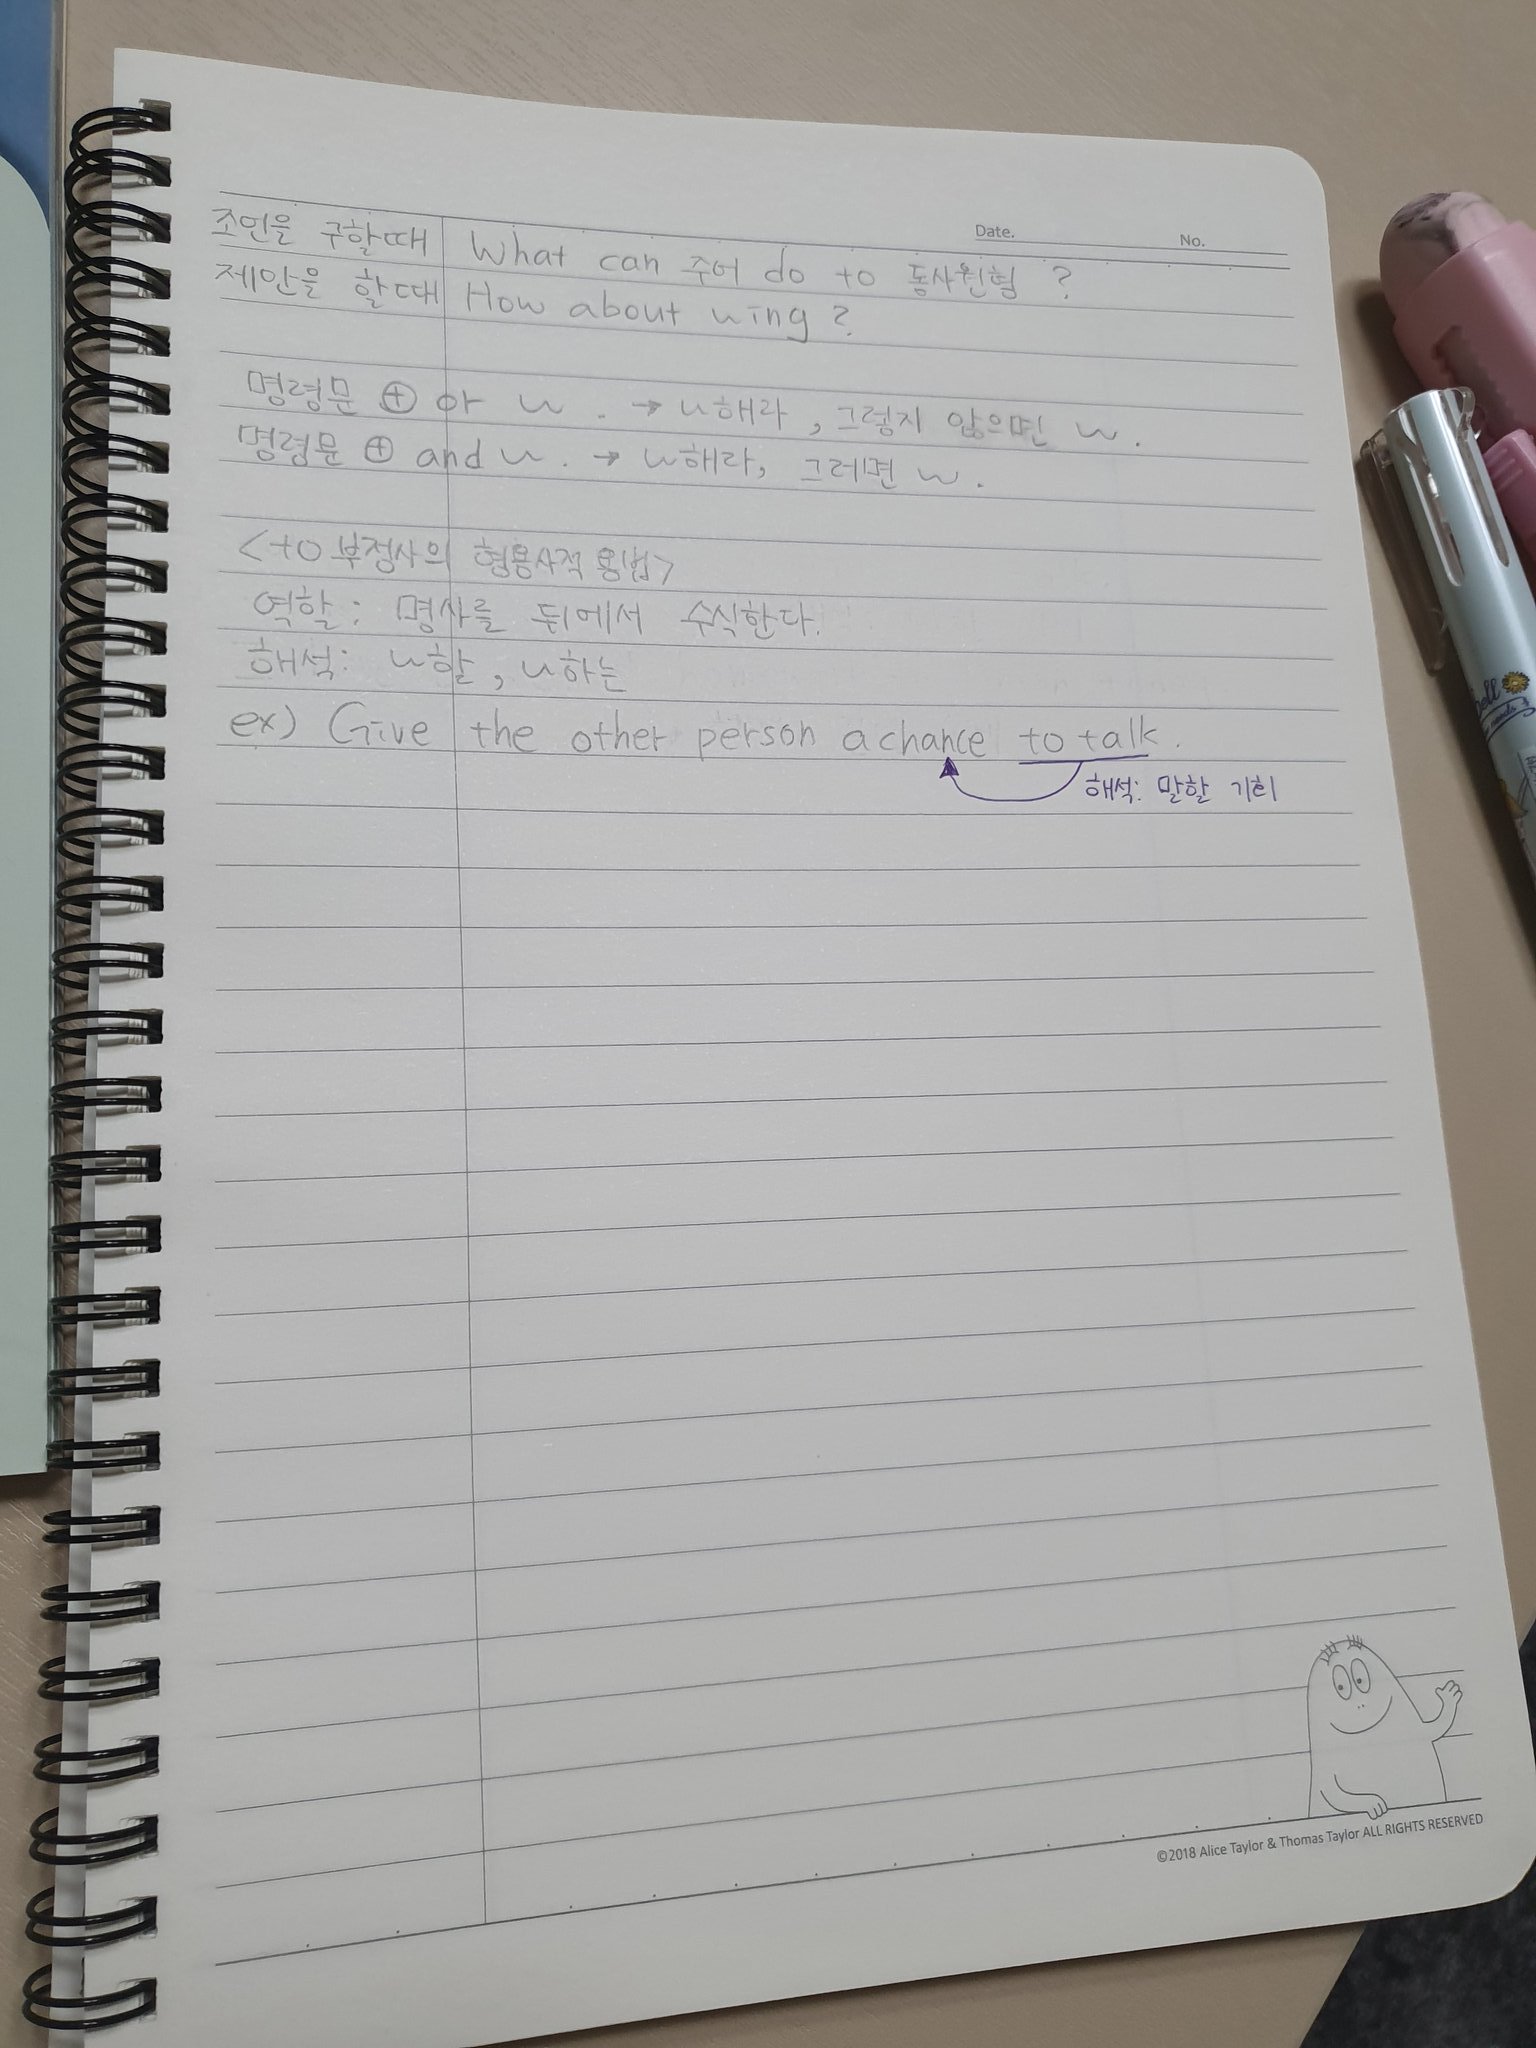 Date. No.
조언을 구할때 What can 주어 do to 동사원형 ?
제안을 할때 How about ~ing ?
명령문 ⊕ or ~ . → ~해라 , 그렇지 않으면 ~ .
명령문 ⊕ and ~ . → ~해라, 그러면 ~ .
<to 부정사의 형용사적 용법>
역할 : 명사를 뒤에서 수식한다.
해석 : ~할 , ~하는
ex) Give the other person a chance to talk .
해석: 말할 기회
©2018 Alice Taylor & Thomas Taylor ALL RIGHTS RESERVED